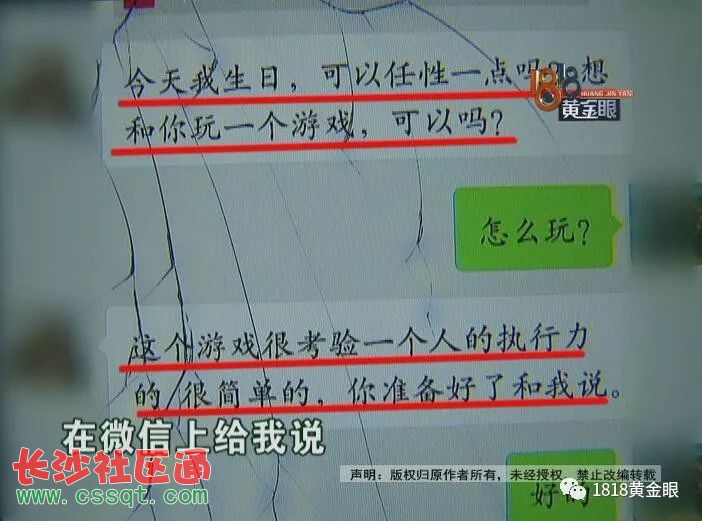 今天我生日，可以任性一点吗？想
1818
HUANG JIN YAN
黄金眼
和你玩一个游戏，可以吗？
怎么玩？
这个游戏很考验一个人的执行力
的，很简单的，你准备好了和我说。
在微信上给我说
长沙社区通
www.cssqt.com
声明：版权归原作者所有，未经授权，禁止改编转载
好的
1818黄金眼